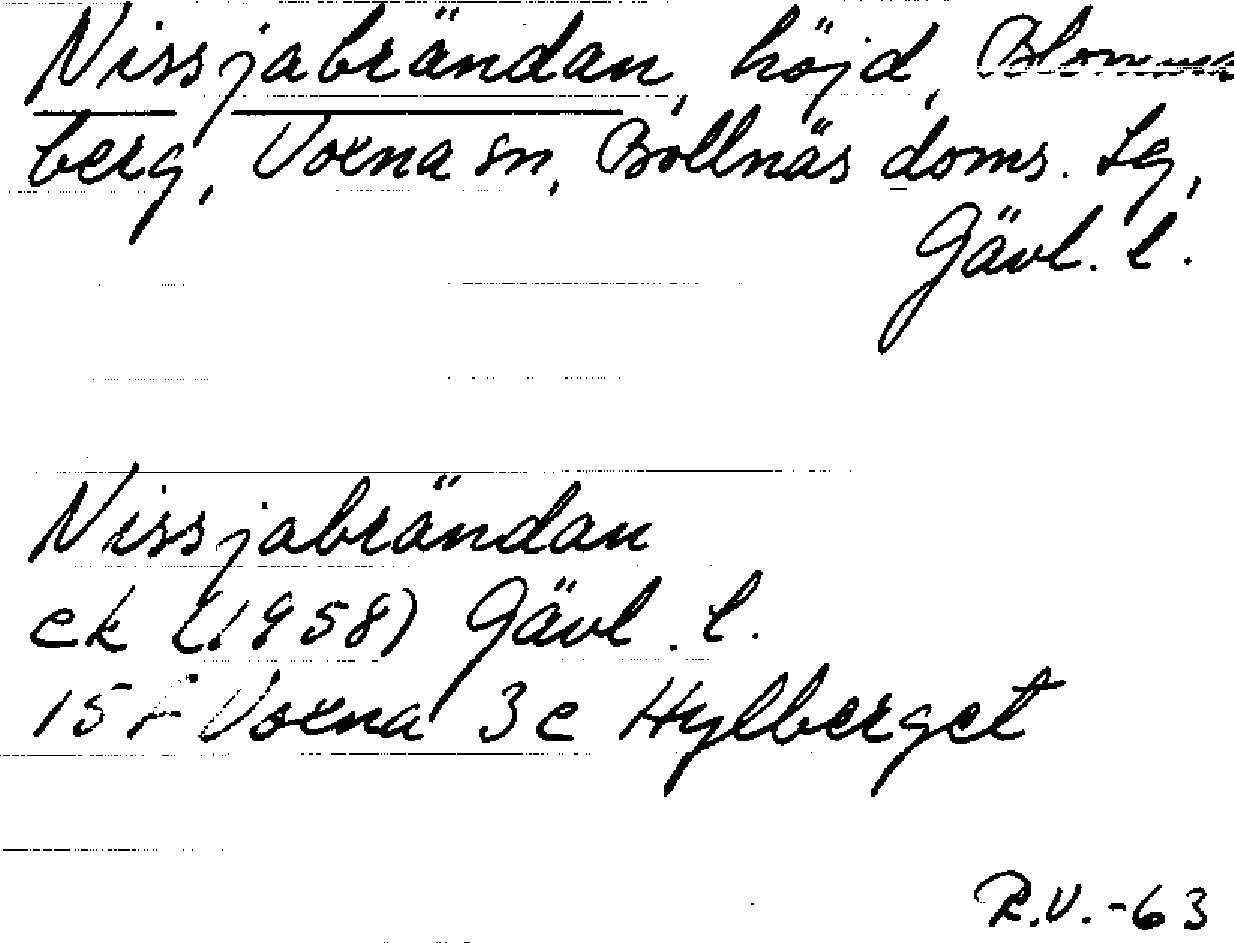 Nissjabrändan, höjd, Blomma
berg, Voxna sn, Bollnäs doms. Lg,
Gävl. l.
Nissjabrändan
ek (1958) Gävl. l.
15 F Voxna 3e Hylberget
R.V.-63